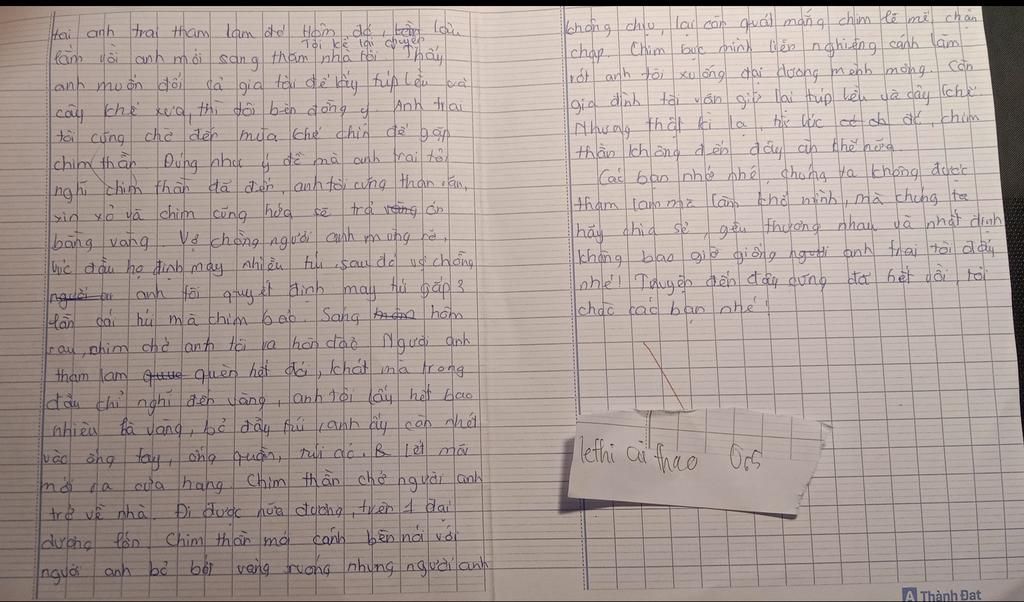 tai anh trai tham lam đó Hôm đó, lần
Tôi kể lại chuyện
lần rồi anh mới sang thăm nhà tôi. Thấy
anh muốn đổi cả gia tài để lấy túp lều và
cây khế xưa, thì tôi bèn đồng ý. Anh trai
tôi cũng chờ đến mùa khế chín để gặp
chim thần. Đúng như ý đồ mà anh trai tôi
nghĩ chim thần đã đến, anh tôi cũng than vãn,
xin xỏ và chim cũng hứa sẽ trả ơn
bằng vàng. Vợ chồng người anh mừng rỡ,
lúc đầu họ định may nhiều túi, sau đó vợ chồng
anh tôi quyết định may túi gấp 3
lần cái túi mà chim bảo. Sang hôm
sau, chim chở anh tôi ra hòn đảo. Người anh
tham lam quên hết đói, khát mà trong
đầu chỉ nghĩ đến vàng, anh tôi lấy hết bao
nhiêu là vàng, bỏ đầy túi, anh ấy còn nhét
vào ống tay, ống quần, túi áo, lết mãi
mới ra cửa hang. Chim thần chở người anh
trở về nhà. Đi được nửa đường, trên 1 đại
dương lớn. Chim thần mỏi cánh bèn nói với
người anh bỏ bớt vàng xuống nhưng người anh
không chịu, lại còn quát mắng chim lề mề chậm
chạp. Chim bực mình liền nghiêng cánh làm
rớt anh tôi xuống đại dương mênh mông. Còn
gia đình tôi vẫn giữ lại túp lều và cây khế.
Nhưng thật kì lạ, từ lúc đó, chim
thần không đến đây ăn khế nữa.
Các bạn nhớ nhé, chúng ta không được
tham lam mà làm khổ mình, mà chúng ta
hãy chia sẻ, yêu thương nhau và nhất định
không bao giờ giống người anh trai tôi đấy
nhé! Truyện đến đây cũng đã hết rồi, tôi
chào các bạn nhé!
lethi cù thao 065
A Thành Đạt